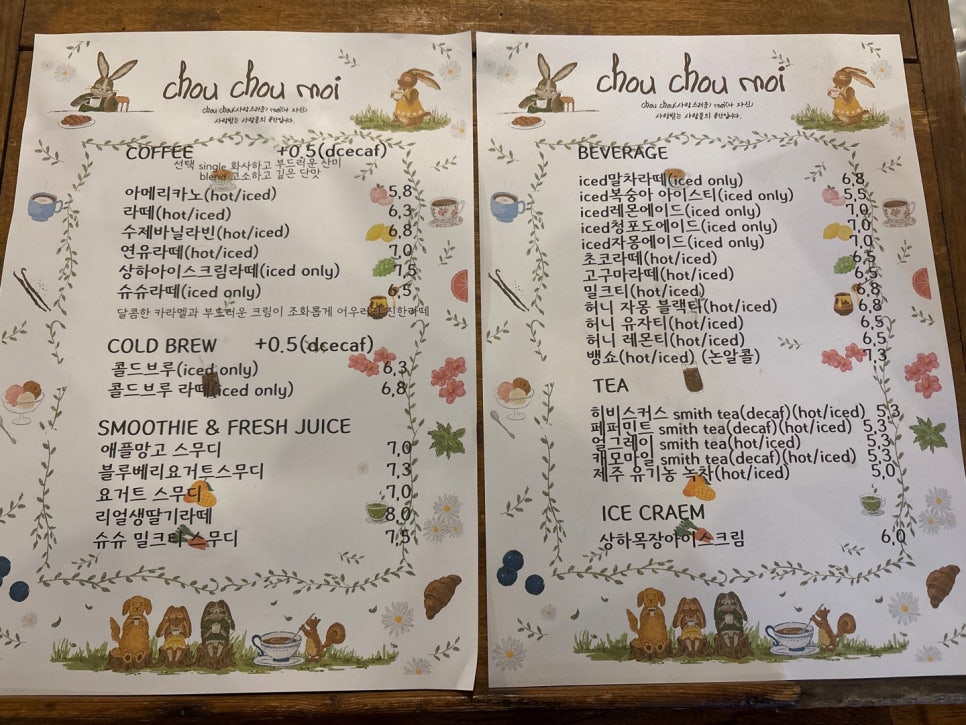 chou chou moi
chou chou(사랑스러운) moi(나 자신)
사랑받는 사람들의 공간입니다.
COFFEE +0.5(dcecaf)
선택 single 화사하고 부드러운 산미
blend 고소하고 깊은 단맛
아메리카노(hot/iced) 5,8
라떼(hot/iced) 6,3
수제바닐라빈(hot/iced) 6,8
연유라떼(hot/iced) 7,0
상하아이스크림라떼(iced only) 7,5
슈슈라떼(iced only) 6,5
달콤한 카라멜과 부드러운 크림이 조화롭게 어우러진 진한라떼
COLD BREW +0.5(dcecaf)
콜드브루(iced only) 6,3
콜드브루 라떼(iced only) 6,8
SMOOTHIE & FRESH JUICE
애플망고 스무디 7,0
블루베리요거트스무디 7,3
요거트 스무디 7,0
리얼생딸기라떼 8,0
슈슈 밀크티 스무디 7,5
chou chou moi
chou chou(사랑스러운) moi(나 자신)
사랑받는 사람들의 공간입니다.
BEVERAGE
iced말차라떼(iced only) 6,8
iced복숭아 아이스티(iced only) 5,5
iced레몬에이드(iced only) 7,0
iced청포도에이드(iced only) 7,0
iced자몽에이드(iced only) 7,0
초코라떼(hot/iced) 6,5
고구마라떼(hot/iced) 6,5
밀크티(hot/iced) 6,8
허니 자몽 블랙티(hot/iced) 6,8
허니 유자티(hot/iced) 6,5
허니 레몬티(hot/iced) 6,5
뱅쇼(hot/iced) (논알콜) 7,3
TEA
히비스커스 smith tea(decaf)(hot/iced) 5,3
페퍼민트 smith tea(decaf)(hot/iced) 5,3
얼그레이 smith tea(hot/iced) 5,3
캐모마일 smith tea(decaf)(hot/iced) 5,3
제주 유기농 녹차(hot/iced) 5,0
ICE CRAEM
상하목장아이스크림 6,0